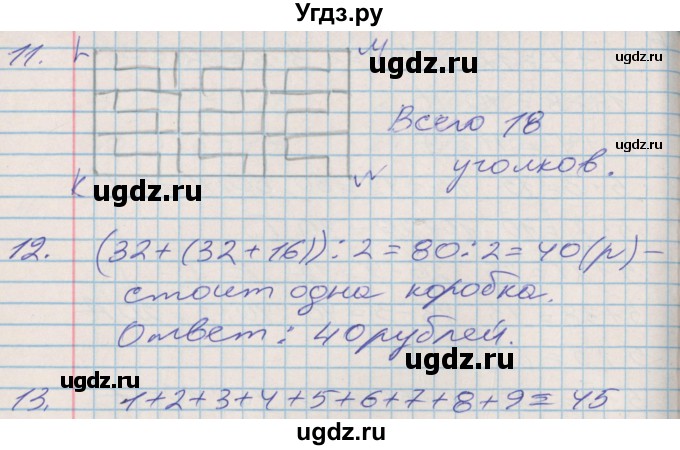 Угдз.ру
11. L M
ugdz.ru
ugdz.ru
Всего 18
ugdz.ru
уголков.
K N
ugdz.ru
ugdz.ru
12. (32+(32+16)):2=80:2=40(р)-
стоит одна коробка.
ugdz.ru
Ответ: 40 рублей.
ugdz.ru
ugdz.ru
13. 1+2+3+4+5+6+7+8+9=45
ugdz.ru